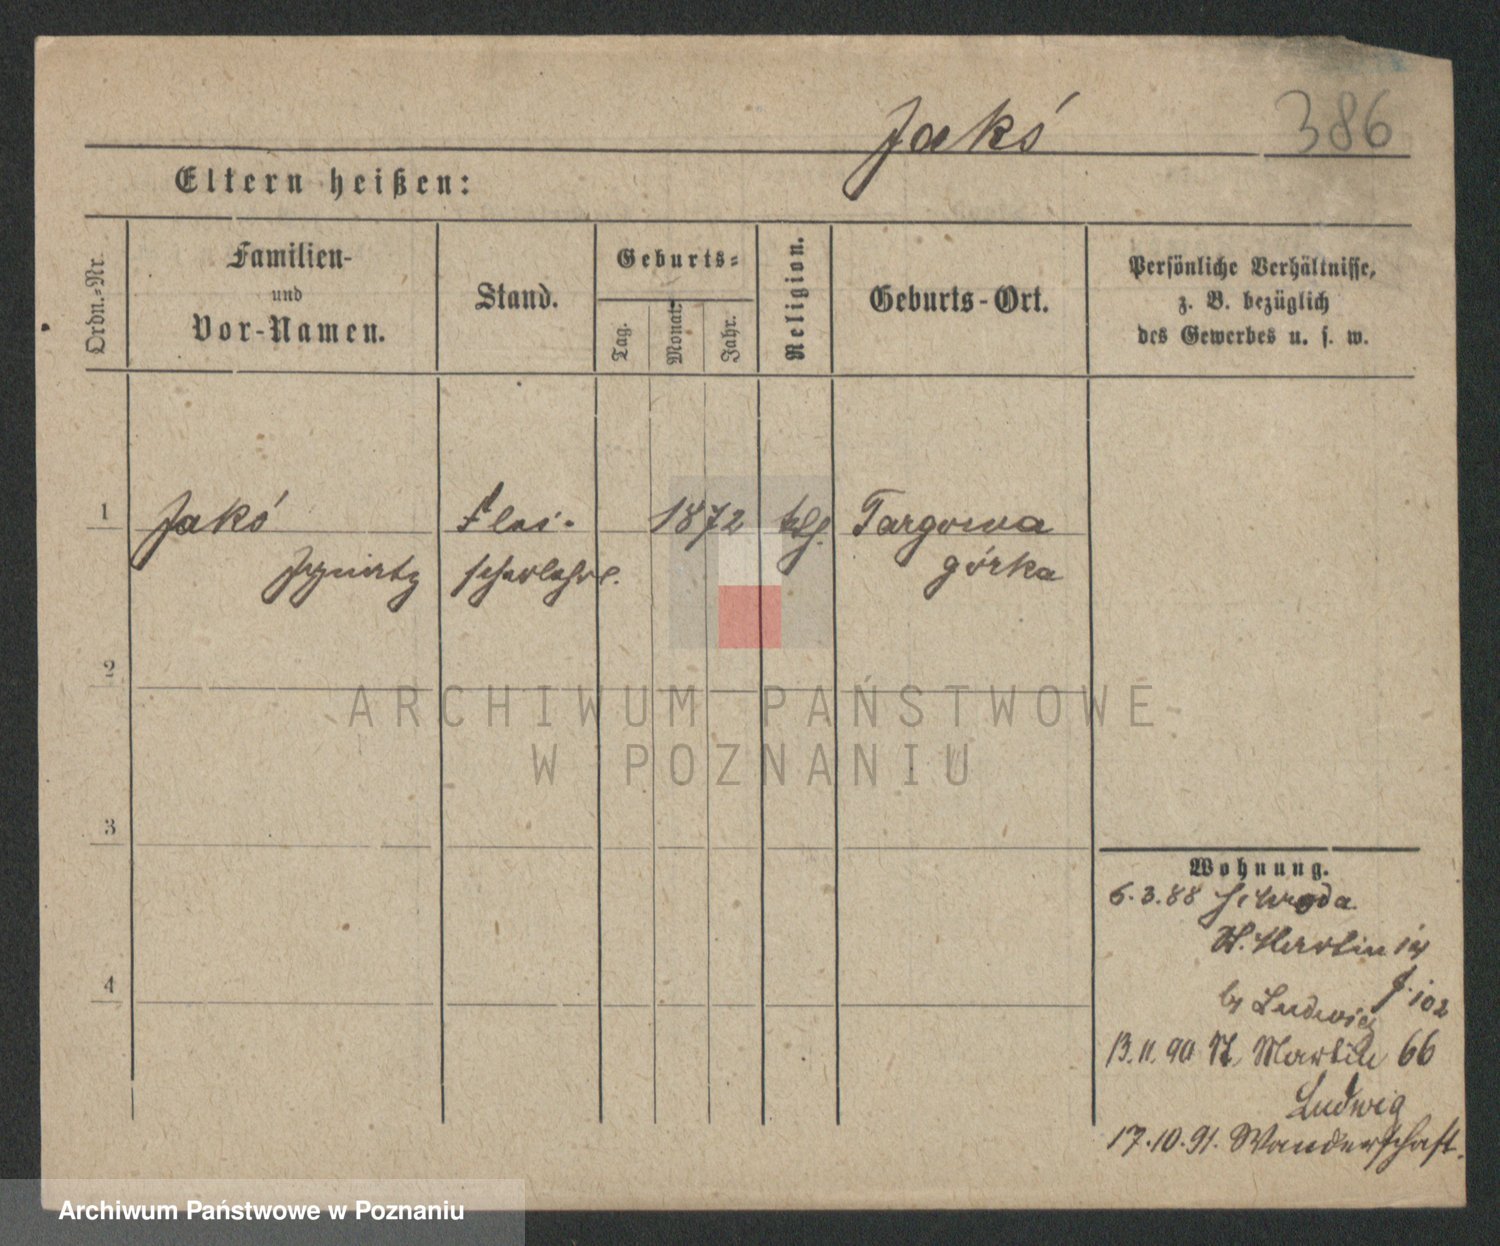 Jakś 386
Eltern heißen:
Ordn.-Nr.
Familien-
und
Vor-Namen.
Stand.
Geburts-
Tag.
Monat.
Jahr.
Religion.
Geburts-Ort.
Persönliche Verhältnisse,
z. B. bezüglich
des Gewerbes u. s. w.
1 Jakś Flei- 1872 kth. Targowa
Ignatz scherlehrl. górka
2
3
4
Wohnung.
6.3.88 Schroda
St. Martin
J. 102
by Ludwig
13.11.90 St. Martin 66
Ludwig
17.10.91. Wanderschaft.
ARCHIWUM PAŃSTWOWE
W POZNANIU
Archiwum Państwowe w Poznaniu